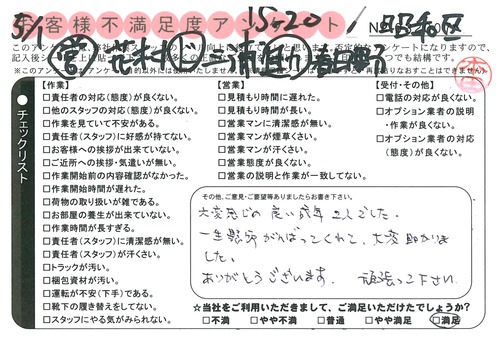 お客様不満足度アンケート
5/1
15:20
昭和区
【作業】
□責任者の対応(態度)が良くない。
□他のスタッフの対応(態度)が良くない。
□作業を見ていて不安がある。
□責任者(スタッフ)に好感が持てない。
□お客様への挨拶が出来ていない。
□ご近所への挨拶・気遣いが無い。
□作業開始前の内容確認がなかった。
□作業開始時間が遅れた。
□荷物の取り扱いが雑である。
□お部屋の養生が出来ていない。
□作業時間が長すぎる。
□責任者(スタッフ)に清潔感が無い。
□責任者(スタッフ)が汗くさい。
□トラックが汚い。
□梱包資材が汚い。
□運転が不安(下手)である。
□靴下の履き替えをしてない。
□スタッフにやる気がみられない。
【営業】
□見積もり時間に遅れた。
□見積もり時間が長い。
□営業マンに清潔感が無い。
□営業マンが煙草くさい。
□営業マンが汗くさい。
□営業態度が良くない。
□営業の説明と作業が一致してない。
【受付・その他】
□電話の対応が良くない。
□オプション業者の説明
・作業が良くない。
□オプション業者の対応
(態度)が良くない。
チェックリスト
その他、ご意見・ご要望等ありましたらお書き下さい。
大変感じの良い青年 2人でした。
一生懸命がんばってくれて、大変助かりま
した。
ありがとうございます。 頑張って下さい
☆当社をご利用いただきまして、ご満足いただけたでしょうか?
□不満 □やや不満 □普通 □やや満足 □満足